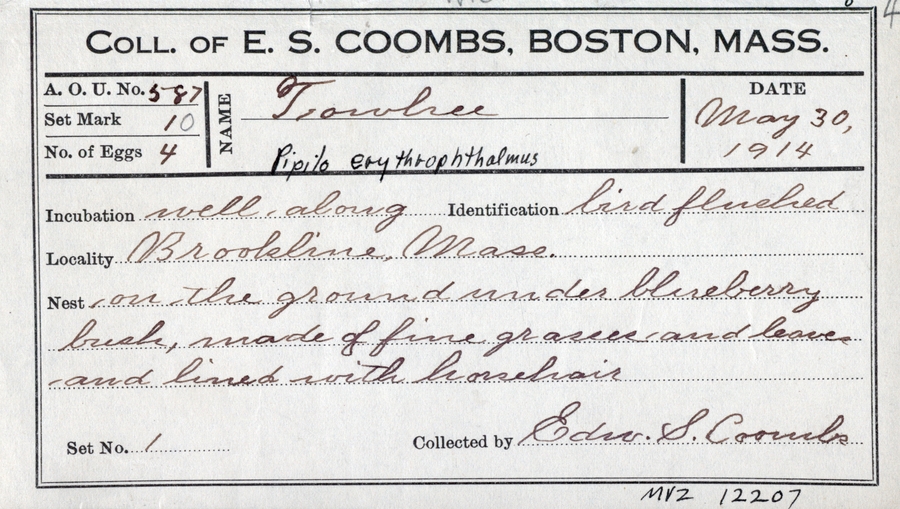 COLL. OF E. S. COOMBS, BOSTON, MASS.
A. O. U. No. 587
Set Mark 10
No. of Eggs 4
NAME
Towhee
Pipilo erythrophthalmus
DATE
May 30,
1914
Incubation well along Identification bird flushed
Locality Brookline, Mass.
Nest on the ground under blueberry
bush, made of fine grasses and leaves
and lined with horsehair
Set No. 1
Collected by Edw. S. Coombs
MVZ 12207